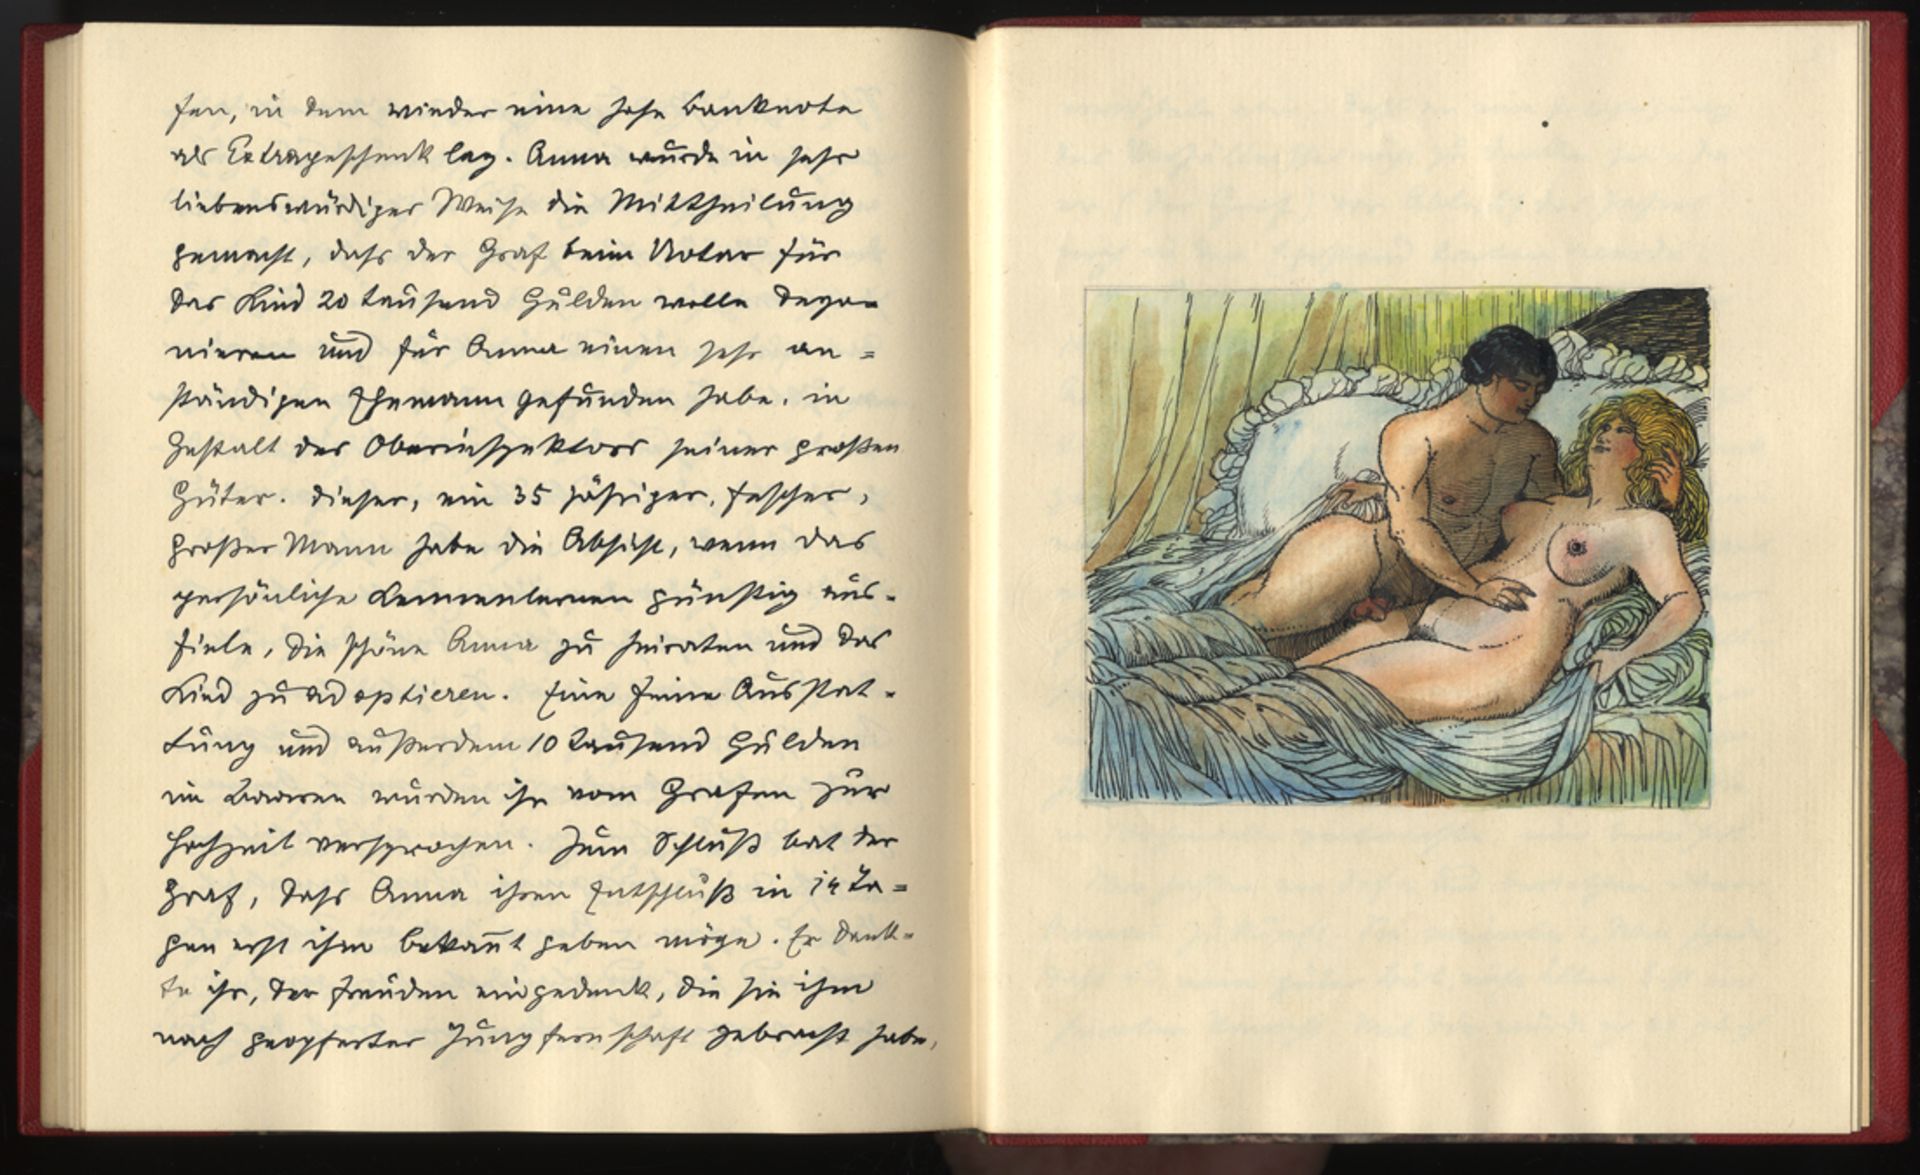 fen, in dem wieder eine hohe Banknote
als Extrageschenk lag. Anna wurde in sehr
liebenswürdiger Weise die Mittheilung
gemacht, dass der Graf beim Notar für
das Kind 20 tausend Gulden wolle depo-
nieren und für Anna einen sehr an=
ständigen Ehemann gefunden habe, in
Gestalt des Oberinspektors seiner großen
Güter. Dieser, ein 35 jähriger, fescher,
großer Mann habe die Absicht, wenn das
persönliche Kennenlernen günstig aus-
fiele, die schöne Anna zu heiraten und das
Kind zu adoptieren. Eine feine Ausstat-
tung und außerdem 10 tausend Gulden
im Baaren wurden ihr vom Grafen zur
Hochzeit versprochen. Zum Schluß bat der
Graf, dass Anna ihren Entschluß in 14 Ta=
gen erst ihm bekannt geben möge. Er dank=
te ihr, der Freuden eingedenk, die sie ihm
nach geopferter Jungfernschaft gebracht habe,